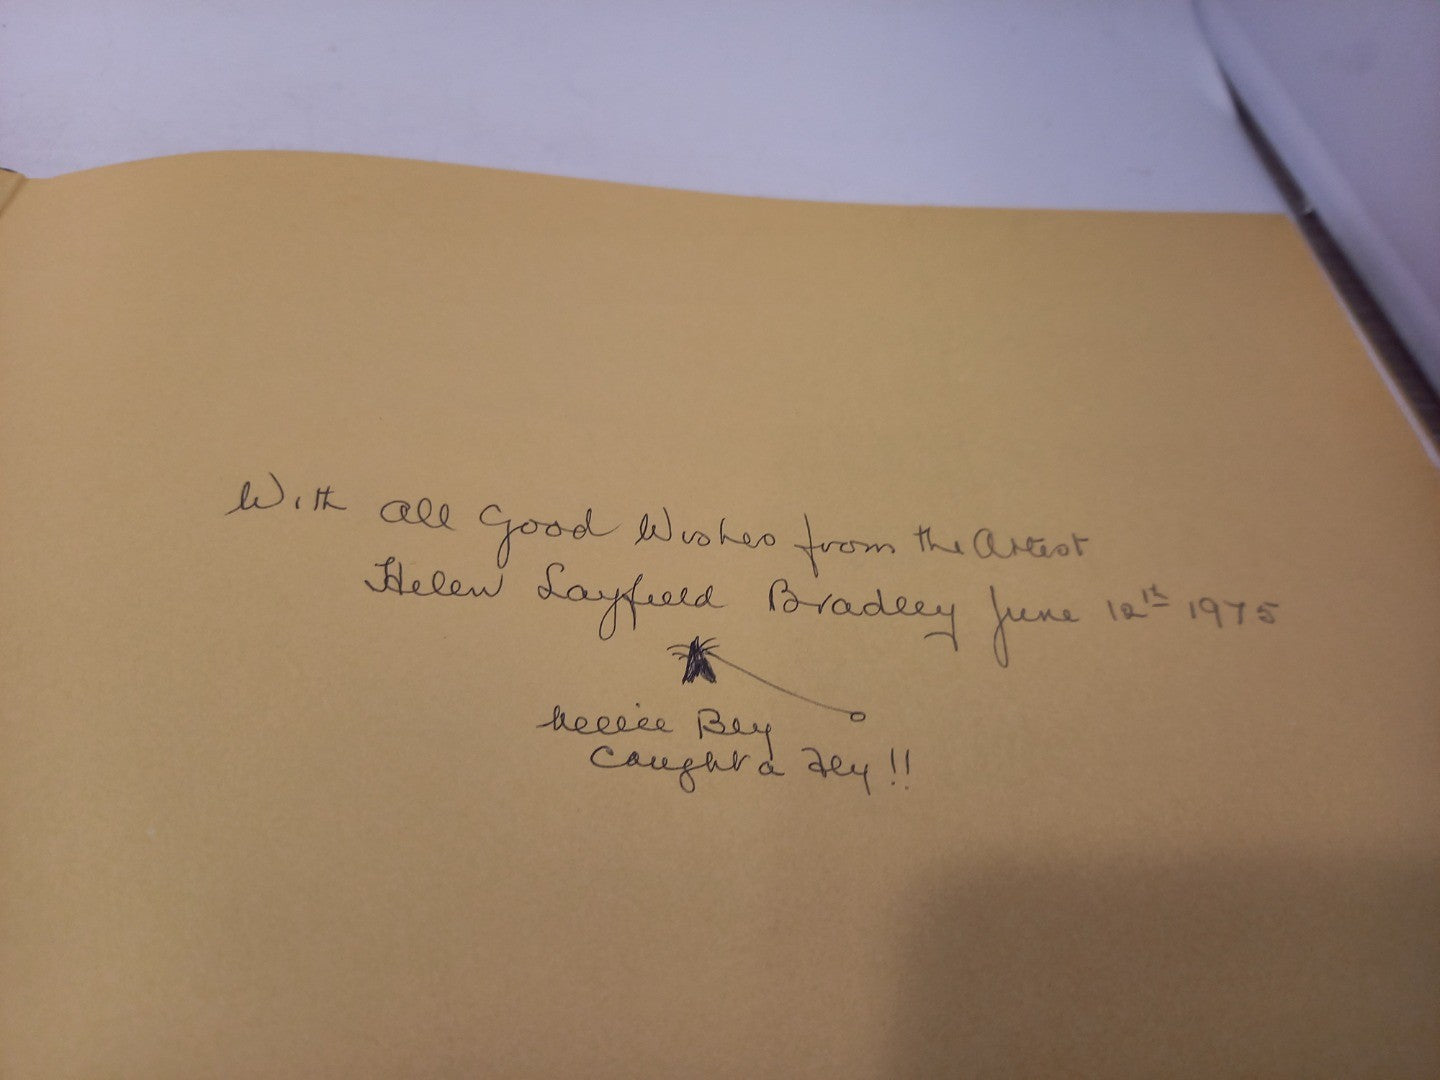 With all Good Wishes from the Artist
Helen Layfield Bradley June 12th 1975
Nellie Bly
Caught a Fly!!